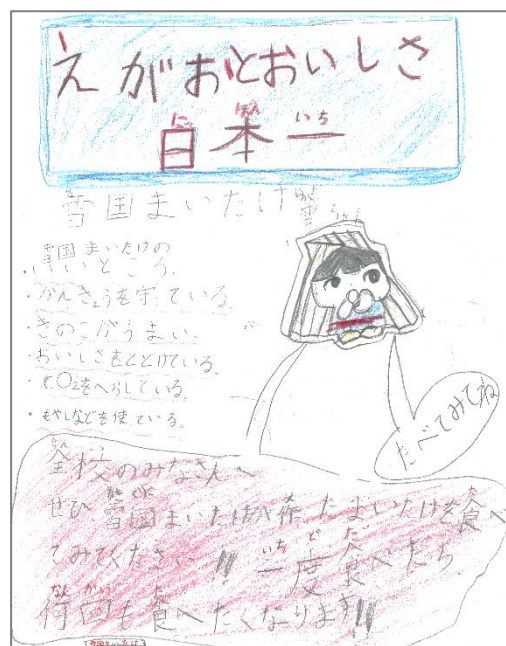 えがおとおいしさ
日本一
にっ ほん いち
雪国まいたけ
雪ちゃん
雪国まいたけの
いいところ
・かんきょうを守っている。
・きのこがうまい。
・おいしさをとどけている。
・CO2をへらしている。
・もやしなどを使っている。
たべてみてね
全校のみなさんへ
ぜひ雪国まいたけが作ったまいたけを食べ
てみてください!! 一度食べたら
何回も食べたくなります!!